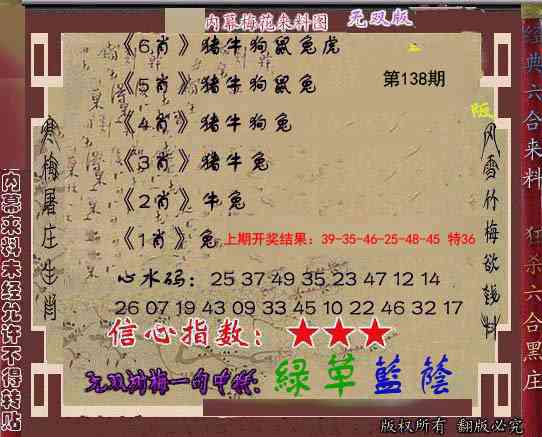 内幕梅花来料图 无双版
《6肖》猪牛狗鼠兔虎
《5肖》猪牛狗鼠兔 第138期
《4肖》猪牛狗兔
《3肖》猪牛兔
《2肖》牛兔
《1肖》兔 上期开奖结果：39-35-46-25-48-45 特36
心水码：25 37 49 35 23 47 12 14
26 07 19 43 09 33 45 10 22 46 32 17
信心指数：★★★
无双浏梅一句中特：綠草藍蔭
版权所有 翻版必究
寒梅屠庄生肖
内幕来料未经允许不得转贴
风雪竹梅欲钱料
经典六合来料
狂杀六合黑庄